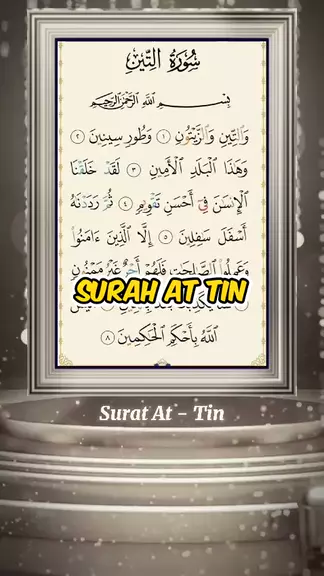 سُورَةُ التِّينِ
بِسْمِ ٱللَّهِ ٱلرَّحْمَٰنِ ٱلرَّحِيمِ
وَٱلتِّينِ وَٱلزَّيْتُونِ ١ وَطُورِ سِينِينَ ٢
وَهَٰذَا ٱلْبَلَدِ ٱلْأَمِينِ ٣ لَقَدْ خَلَقْنَا
ٱلْإِنسَٰنَ فِىٓ أَحْسَنِ تَقْوِيمٍ ٤ ثُمَّ رَدَدْنَٰهُ
أَسْفَلَ سَٰفِلِينَ ٥ إِلَّا ٱلَّذِينَ ءَامَنُوا۟
وَعَمِلُوا۟ ٱلصَّٰلِحَٰتِ فَلَهُمْ أَجْرٌ غَيْرُ مَمْنُونٍ
SURAH AT TIN
ٱللَّهُ بِأَحْكَمِ ٱلْحَٰكِمِينَ ٨
Surat At - Tin